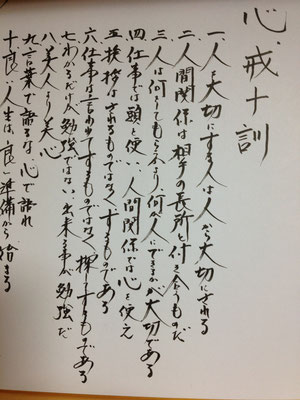 心戒十訓
一、人を大切にする人は人から大切にされる
二、人間関係は相手の長所と付き合うものだ
三、人は何をしてもらうより、何が人にできるかが大切である
四、仕事では頭を使い、人間関係では心を使え
五、挨拶はされるものではなくするものである
六、仕事は言われてするものではなく探してするものである
七、わかるだけが勉強ではない出来る事が勉強だ
八、美人より美心
九、言葉で語るな、心で語れ
十、良い人生は、良い準備から始まる